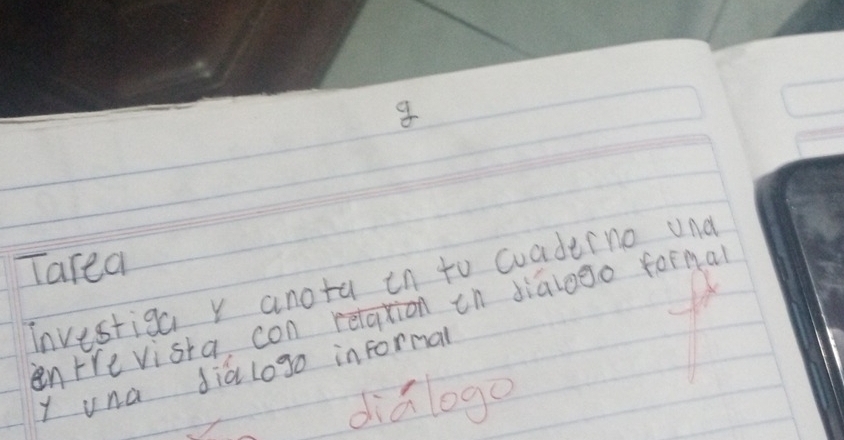 g
Tarea
investiga y anota en tu cuaderno una
entrevista con relation en diálogo formal
y una diálogo informal
diálogo